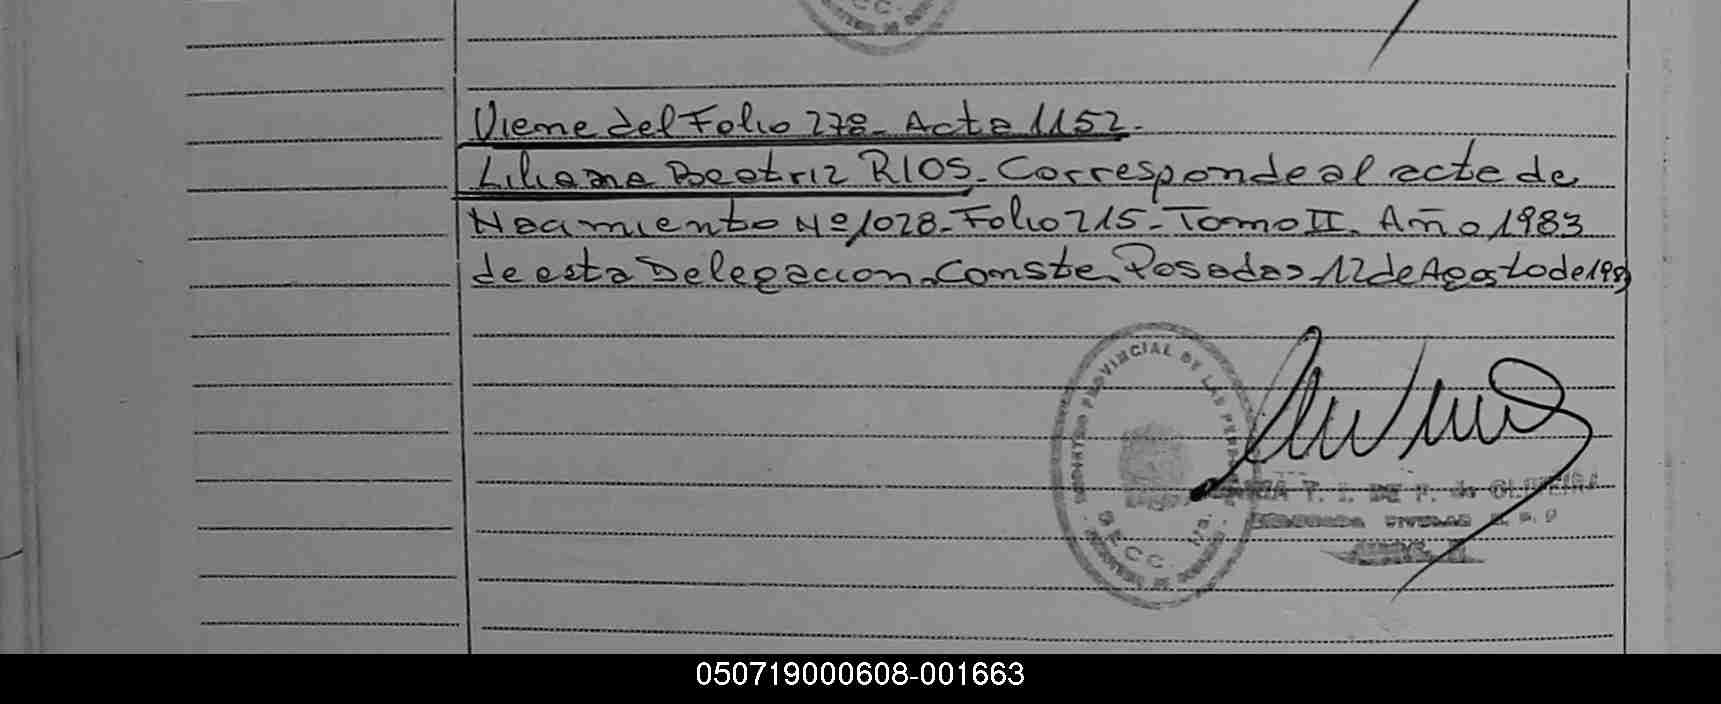 Viene del Folio 278- Acta 1152-
Liliana Beatriz RIOS. Corresponde al acta de
Nacimiento Nº 1028- Folio 215- Tomo II. Año 1983
de esta Delegacion. Conste. Posadas 12 de Agosto de
PROVINCIAL DE LAS
T. I. DE P. de OLIVEIRA
050719000608-001663